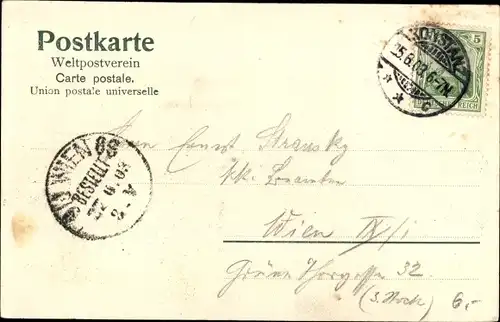 Postkarte
Weltpostverein
Carte postale.
Union postale universelle
KONSTANZ
25.6.03.6-7N
5
REICH
WIEN
BESTELLT
27.6.03
Herrn Ernst Stransky
k.k. Beamten
Wien IX/1
Grüne Thorgasse 32
(3. Stock) 6,-